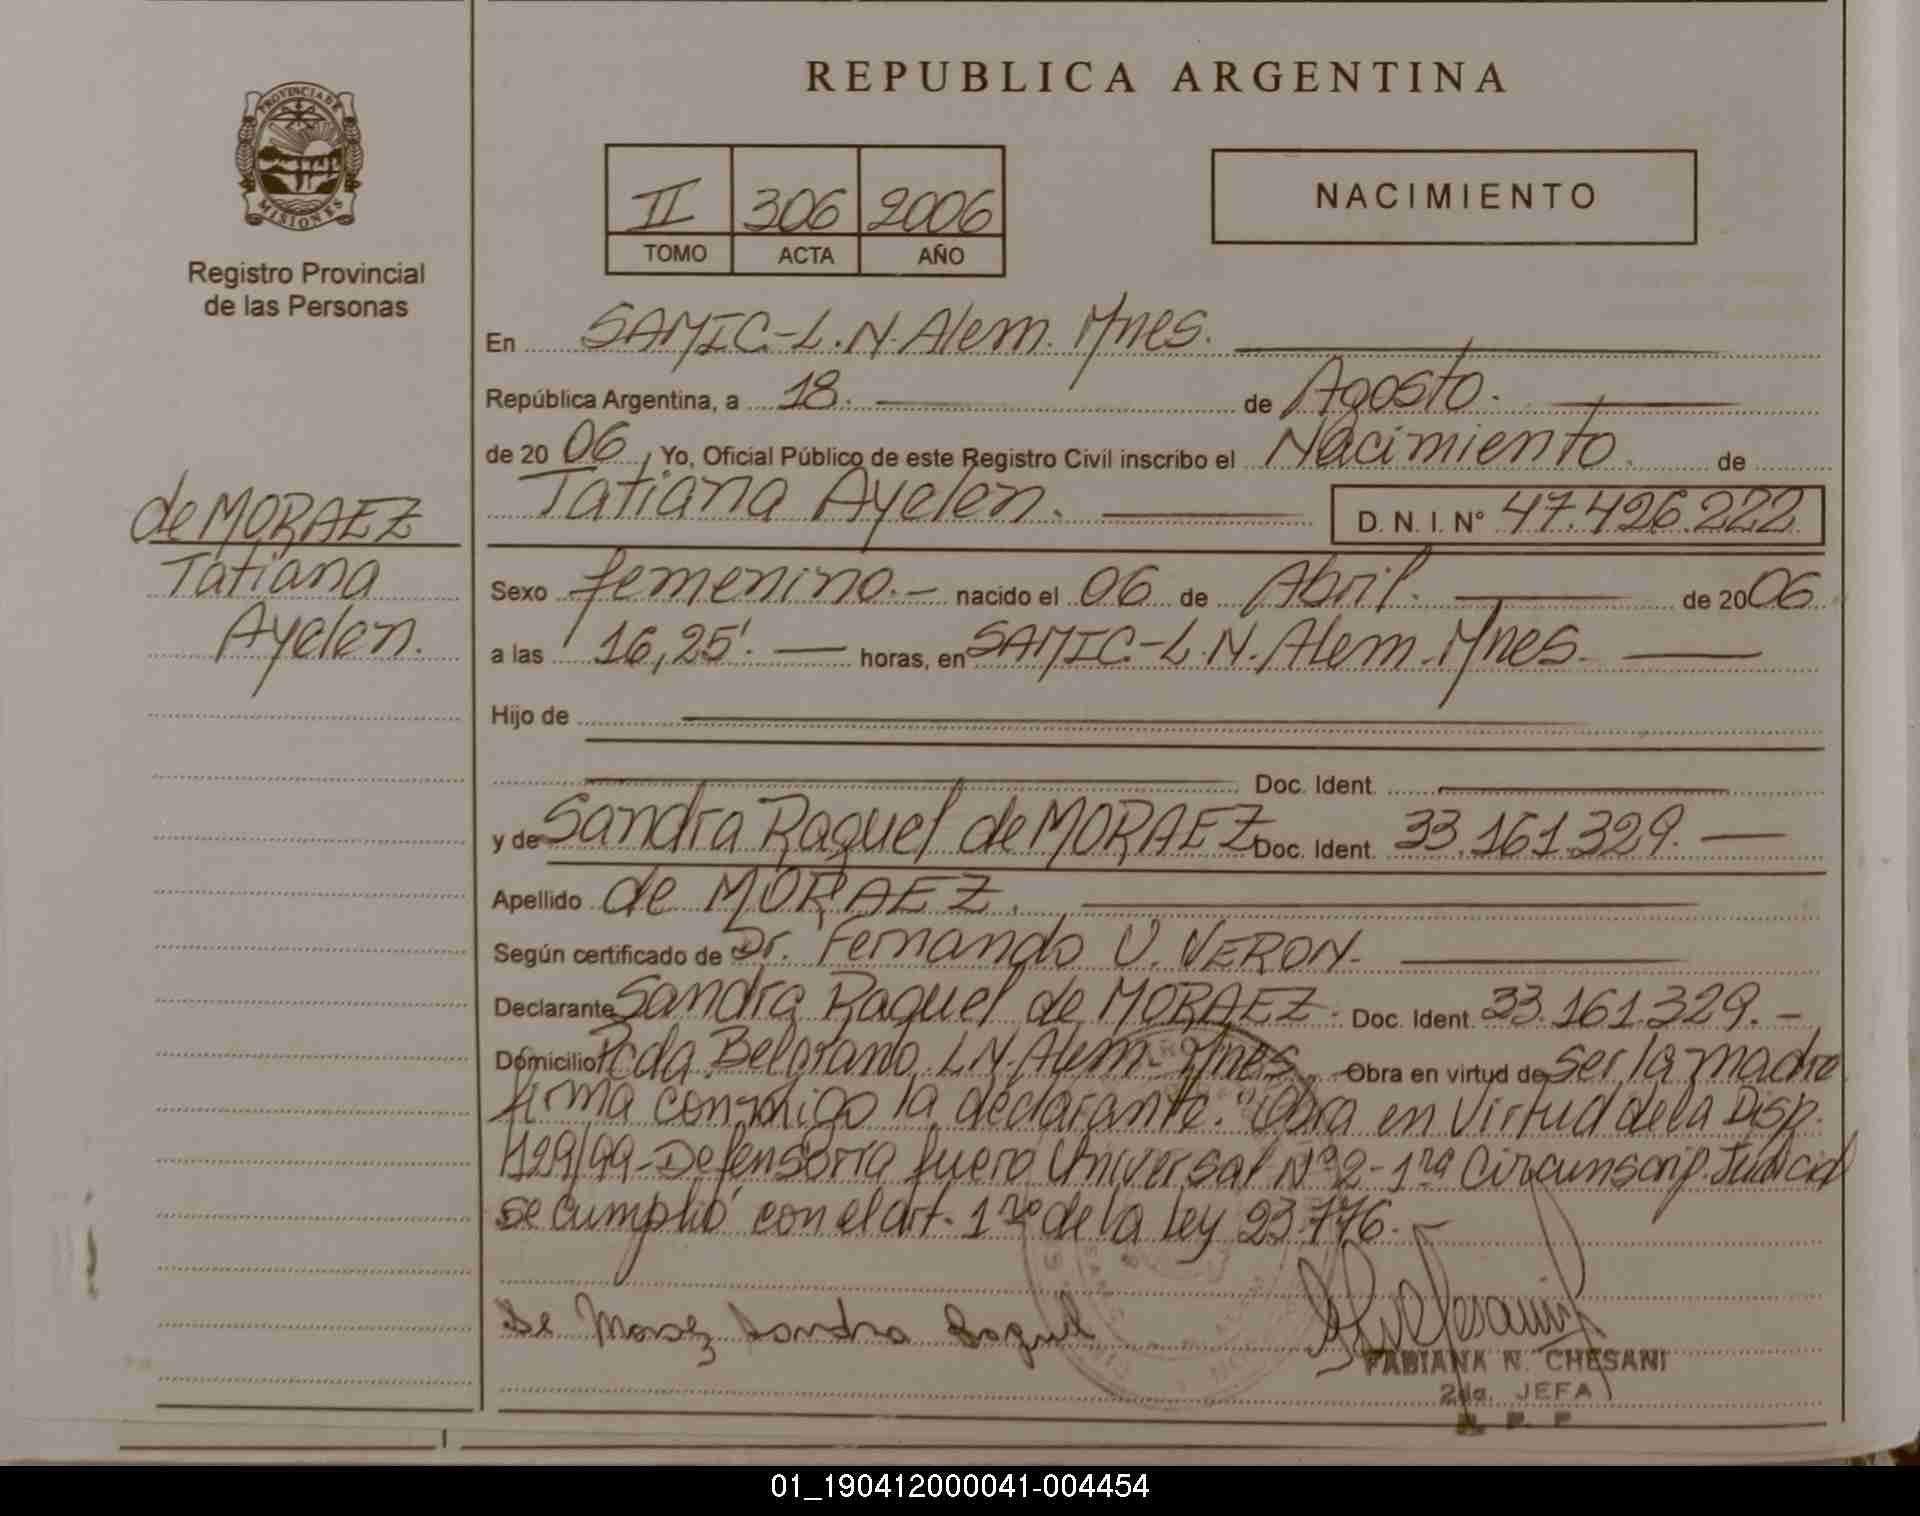 REPUBLICA ARGENTINA
PROVINCIA DE
MISIONES
Registro Provincial
de las Personas
II 306 2006
TOMO ACTA AÑO
NACIMIENTO
de MORAEZ
Tatiana
Ayelen.
En SAMIC-L.N.Alem. Mnes.
República Argentina, a 18. de Agosto.
de 2006, Yo, Oficial Público de este Registro Civil inscribo el Nacimiento. de
Tatiana Ayelen. D. N. I. N° 47.426.222
Sexo femenino.- nacido el 06 de Abril. de 2006
a las 16,25'. horas, en SAMIC-L.N.Alem.Mnes.
Hijo de
Doc. Ident.
y de Sandra Raquel de MORAEZ Doc. Ident. 33.161.329.
Apellido de MORAEZ.
Según certificado de Dr. Fernando U. VERON.
Declarante Sandra Raquel de MORAEZ. Doc. Ident. 33.161.329.-
Domicilio Pcda. Belgrano. L.N.Alem-Mnes. Obra en virtud de ser la madre
firma conmigo la declarante. "Obra en Virtud de la Disp.
1129/99-Defensoría fuero Universal N°2-1ra Circunscrip. Judicial
se cumplió con el art. 1ro de la ley 23.776.
De Moraez Sandra Raquel
FABIANA N. CHESANI
2da. JEFA
R. P. P
01_190412000041-004454